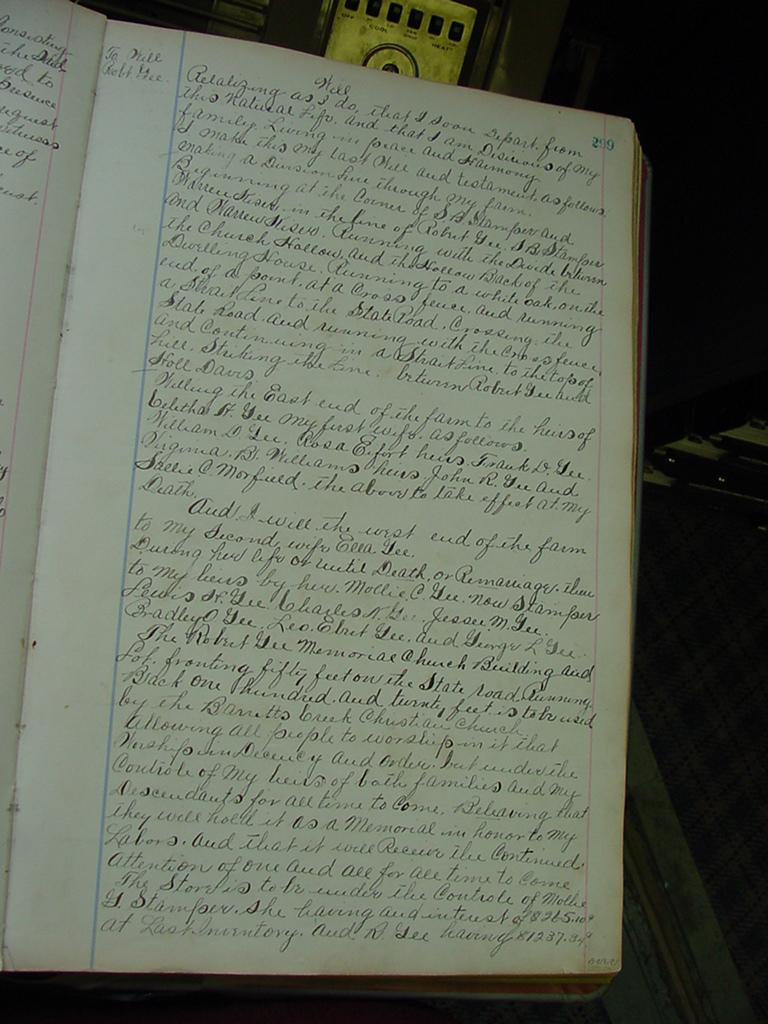 onsisting
the
ed to
Presence
of
299
To Will
Robt. Gee.
Will
Relalizing as I do, that I soon Depart from
this Natural Life, and that I am Disirious of My
family Living in peace and Harmony
I make this my Last Will and testament, as follows.
making a Division Line through my farm.
Beginning at the Corner of S.B. Stamper and
Warren Fiser, in the line of Robert Gee, S.B. Stamper
and Warren Fiser. Running with the Divide between
the Church Hollow, and the Hollow Back of the
Dwelling House. Running to a white oak, on the
end of a point, at a Cross fence, and running
a Strait Line to the State Road. Crossing the
State Road. and running with the Cross fence
and Continuing in a Strait Line to the top of
hill. Striking the Line. between Robert Gee and
Holl Davis
Willing the East end of the farm to the heirs of
Celitha H. Gee my first wife. as follows.
William D. Gee. Rosa E. fort heirs. Frank D. Gee.
Virginia. B. Williams heirs John R. Gee and
Sallie C. Morfield. the above to take effect at my
Death.
And I will the west end of the farm
to my Second wife Ella Gee.
During her life or until Death, or Remarriage. then
to my heirs by her. Mollie C. Gee. now Stamper
Lewis H. Gee. Charles N. Gee. Jesse. M. Gee.
Bradley O. Gee. Leo. Ebert Gee. and George L. Gee.
The Robert Gee Memorial Church Building and
Lot. fronting fifty feet on the State road, Running
Back one hundred. and twenty feet. is to be used
by the Barretts Creek Christian Church
Allowing all people to worship in it that
Worship in Decency and order. but under the
Controle of My heirs of both families and My
Descendants for all time to Come. Beleaving that
they will hold it as a Memorial in honor to My
Labors. and that it will Receive the Continued
Attention of one and all for all time to Come
The Store is to be under the Controle of Mollie
G Stamper. She having and interest of
at Last inventory. And R. Gee having
over